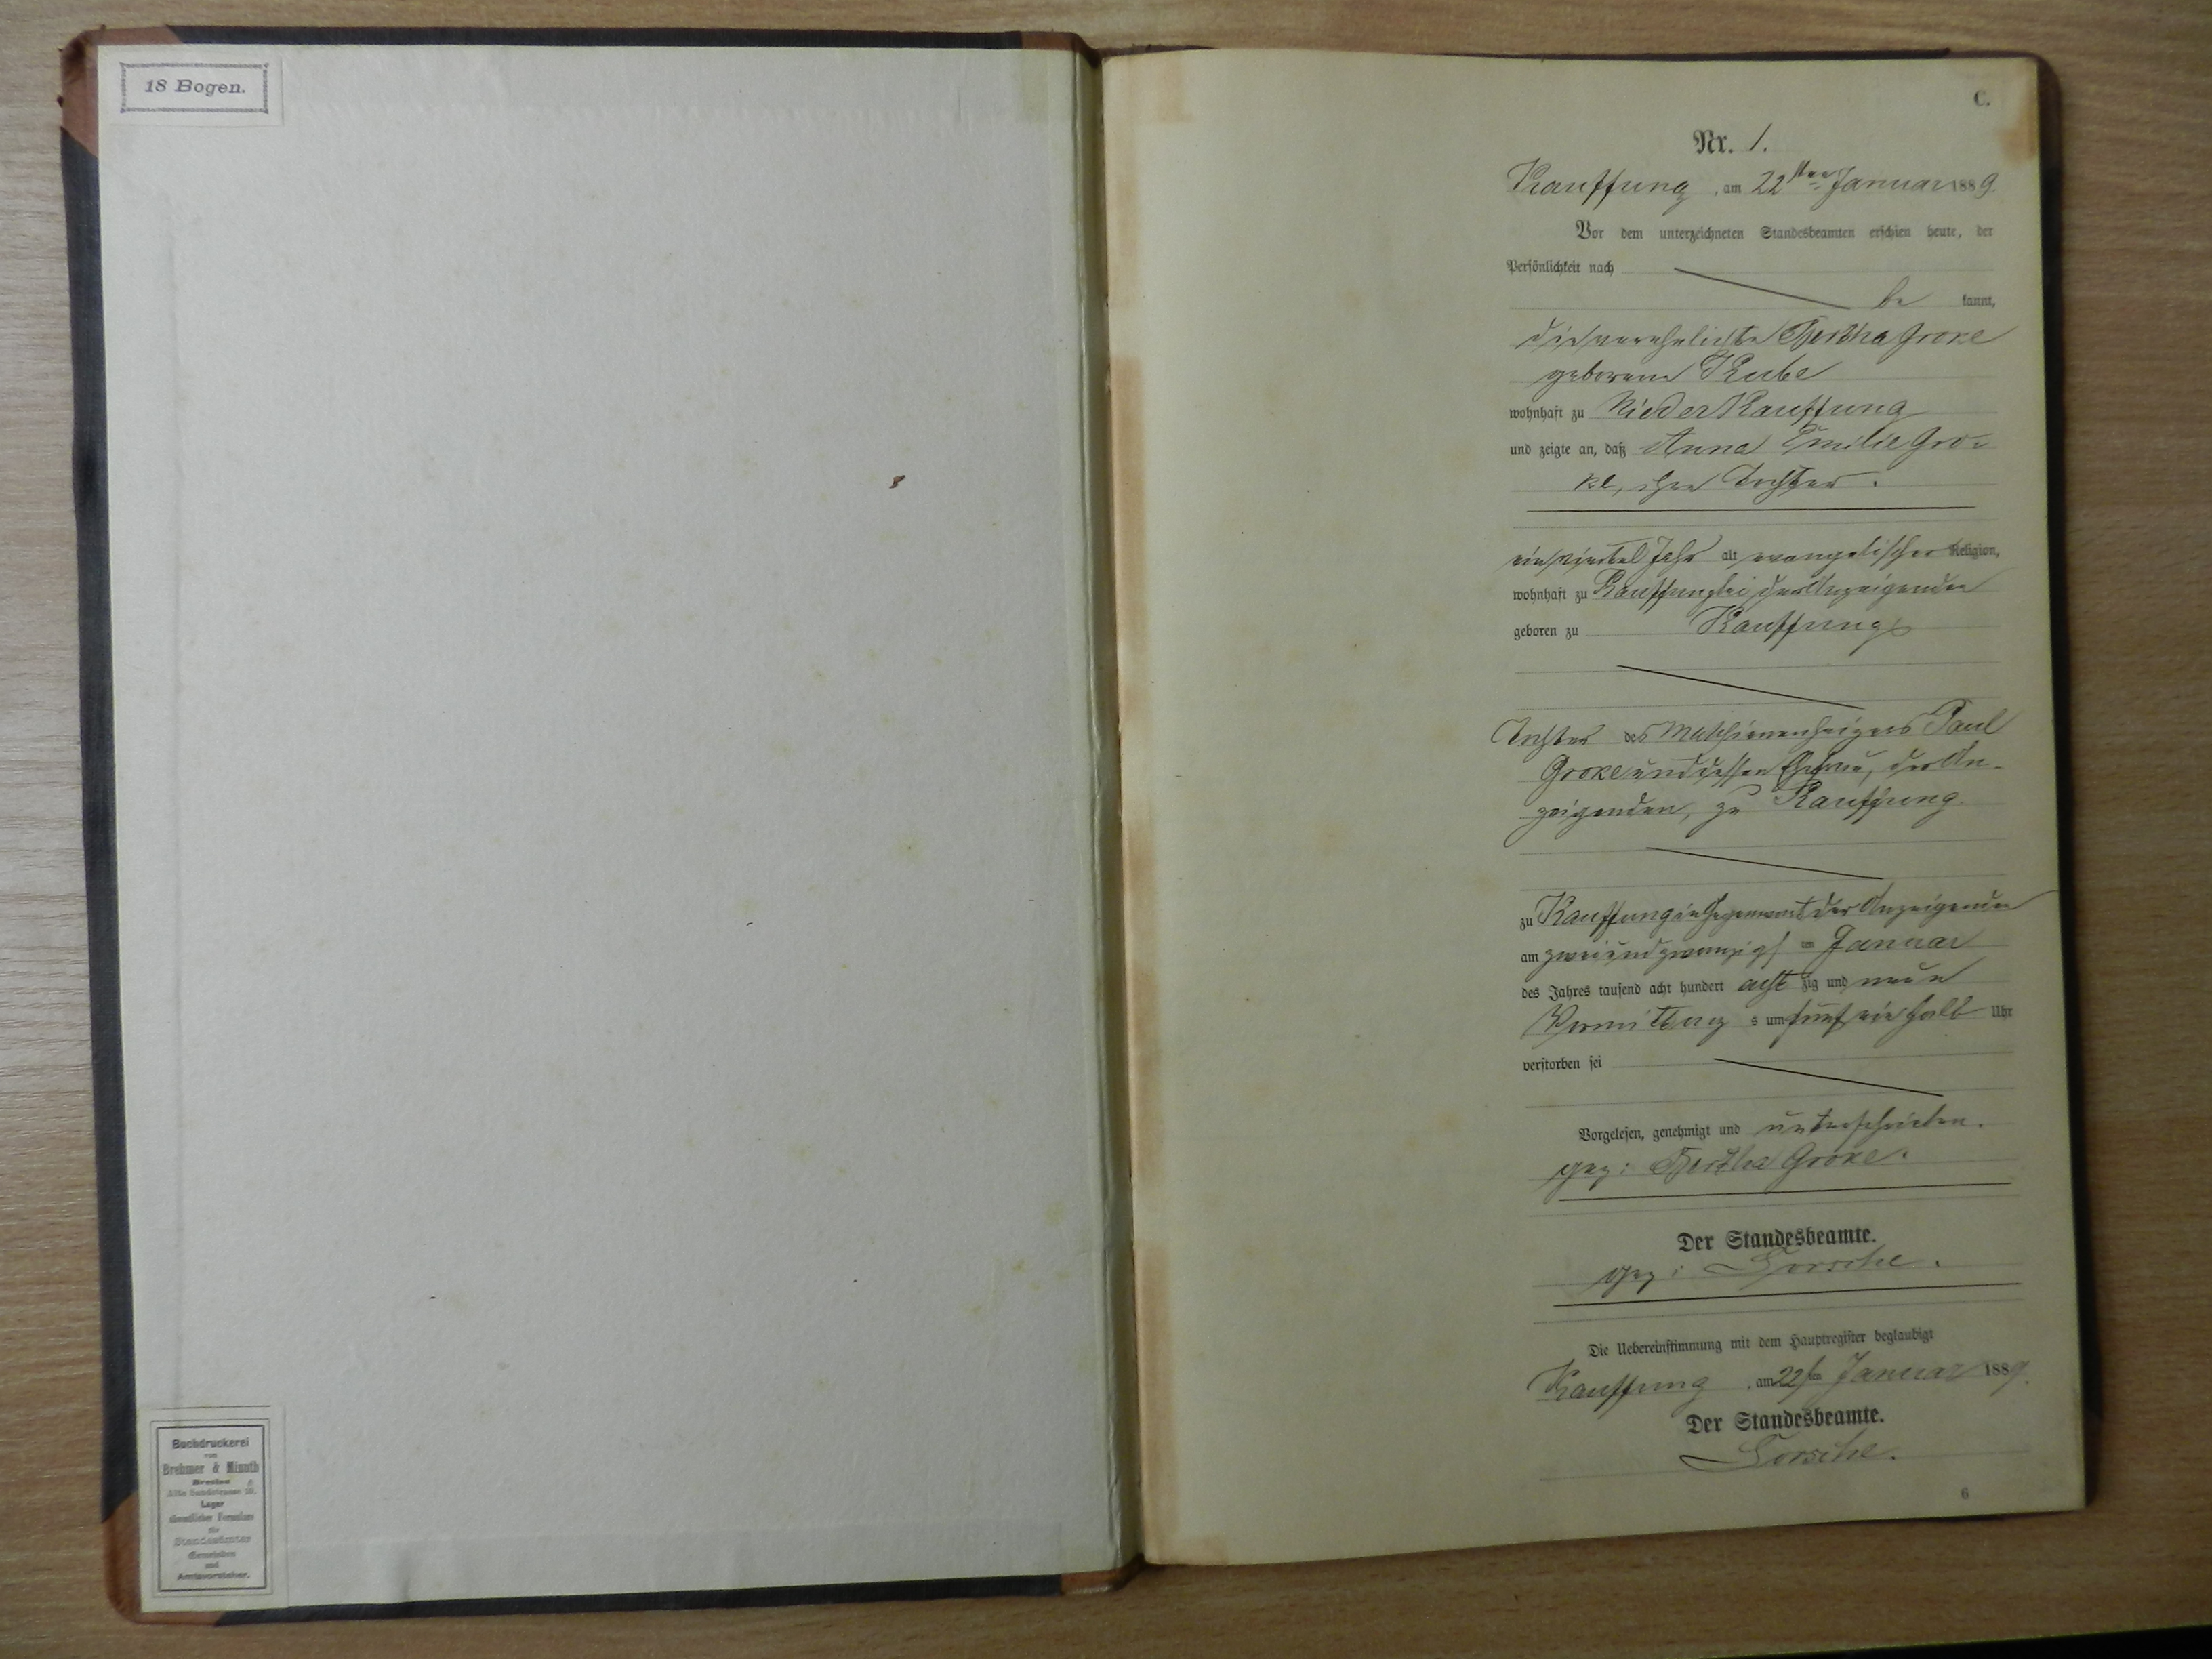 18 Bogen.
Buchdruckerei
von
Brehmer & Minuth
Breslau
Alte Sandstrasse 10.
Lager
sämmtlicher Formulare
für
Standesämter
Gemeinden
und
Amtsvorsteher.
C.
Nr. 1.
Kauffung, am 22ten Januar 1889.
Vor dem unterzeichneten Standesbeamten erschien heute, der
Persönlichkeit nach
be kannt,
die verehelichte Bertha Groke
geborene Kube
wohnhaft zu Nieder Kauffung
und zeigte an, daß Anna Emilie Gro-
ke, ihre Tochter.
ein viertel Jahr alt, evangelischer Religion,
wohnhaft zu Kauffung bei der Anzeigenden
geboren zu Kauffung
Tochter des Maschienenheizers Paul
Groke und dessen Ehefrau, der An-
zeigenden, zu Kauffung
zu Kauffung in Gegenwart der Anzeigenden
am zweiundzwanzigsten Januar
des Jahres tausend acht hundert acht zig und neun
Vormittag s um fünf ein halb Uhr
verstorben sei
Vorgelesen, genehmigt und unterschrieben.
gez: Bertha Groke.
Der Standesbeamte.
gez:
Die Uebereinstimmung mit dem Hauptregister beglaubigt
Kauffung, am 22ten Januar 1889.
Der Standesbeamte.
6